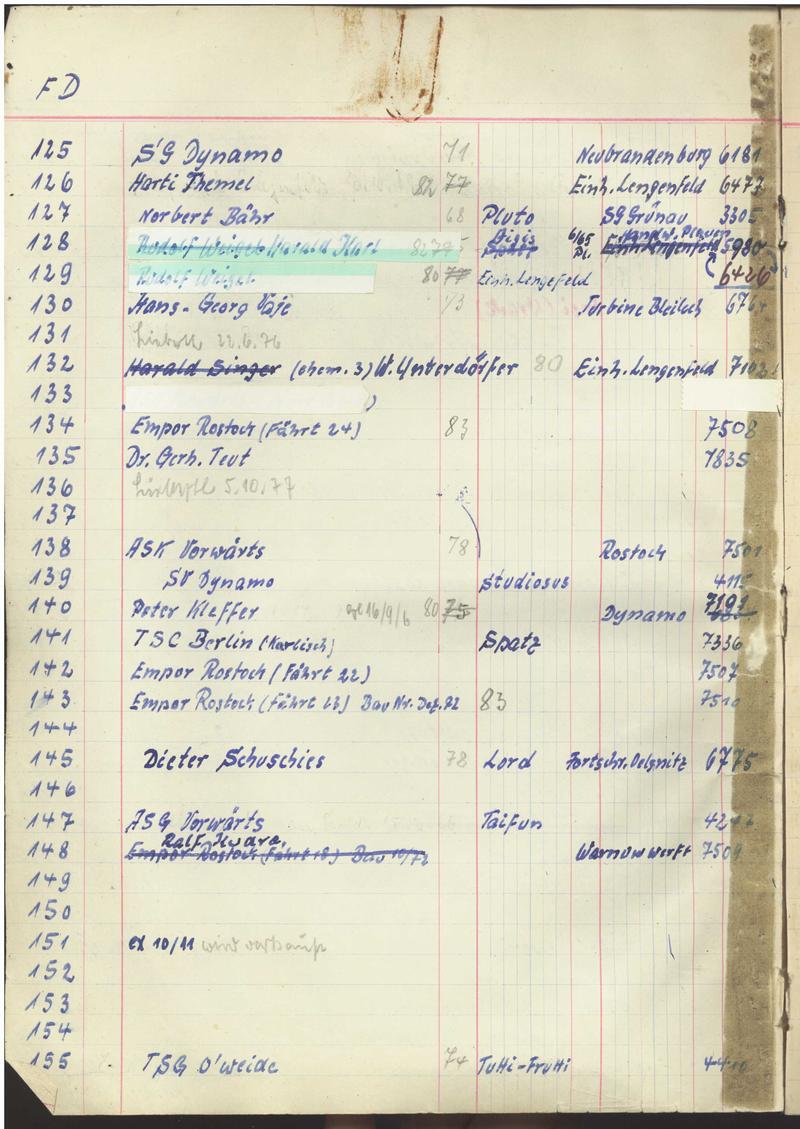 FD
125 SG Dynamo 71 Neubrandenburg 6181
126 Harti Themel 82 77 Einh. Lengenfeld 6477
127 Norbert Bähr 68 Pluto SG Grünau 3305
128 Rudolf Weigel Harald Karl 82 5 6/65 Pl. Handw. Plauen Einh. Lengenfeld 5980
129 Rudolf Weigel 80 77 Einh. Lengefeld 6426
130 Hans-Georg 73 Turbine Bleiloch
131 22.6.76
132 Harald Singer (ehem. 3) W. Unterdörfer 80 Einh. Lengenfeld
133
134 Empor Rostock (Fährt 24) 83 7508
135 Dr. Gerh. Teut 7835
136 5.10.77
137
138 ASK Vorwärts 78 Rostock 7501
139 SV Dynamo Studiosus
140 Peter Kleffer 16/9/6 80 75 Dynamo 7191
141 TSC Berlin (Karlisch) Spatz 7336
142 Empor Rostock (Fährt 22) 7507
143 Empor Rostock (Fährt 23) Bau Nr. Dez. 72 83 7510
144
145 Dieter Schuschies 78 Lord Fortschr. Oelsnitz 6775
146
147 ASG Vorwärts Taifun
148 Ralf Kudra, Empor Rostock (Fährt 18) Bau 10/72 Warnowwerft 7509
149
150
151 ex 10/11 wird verkauft
152
153
154
155 TSG O'weide 74 Tutti-Frutti